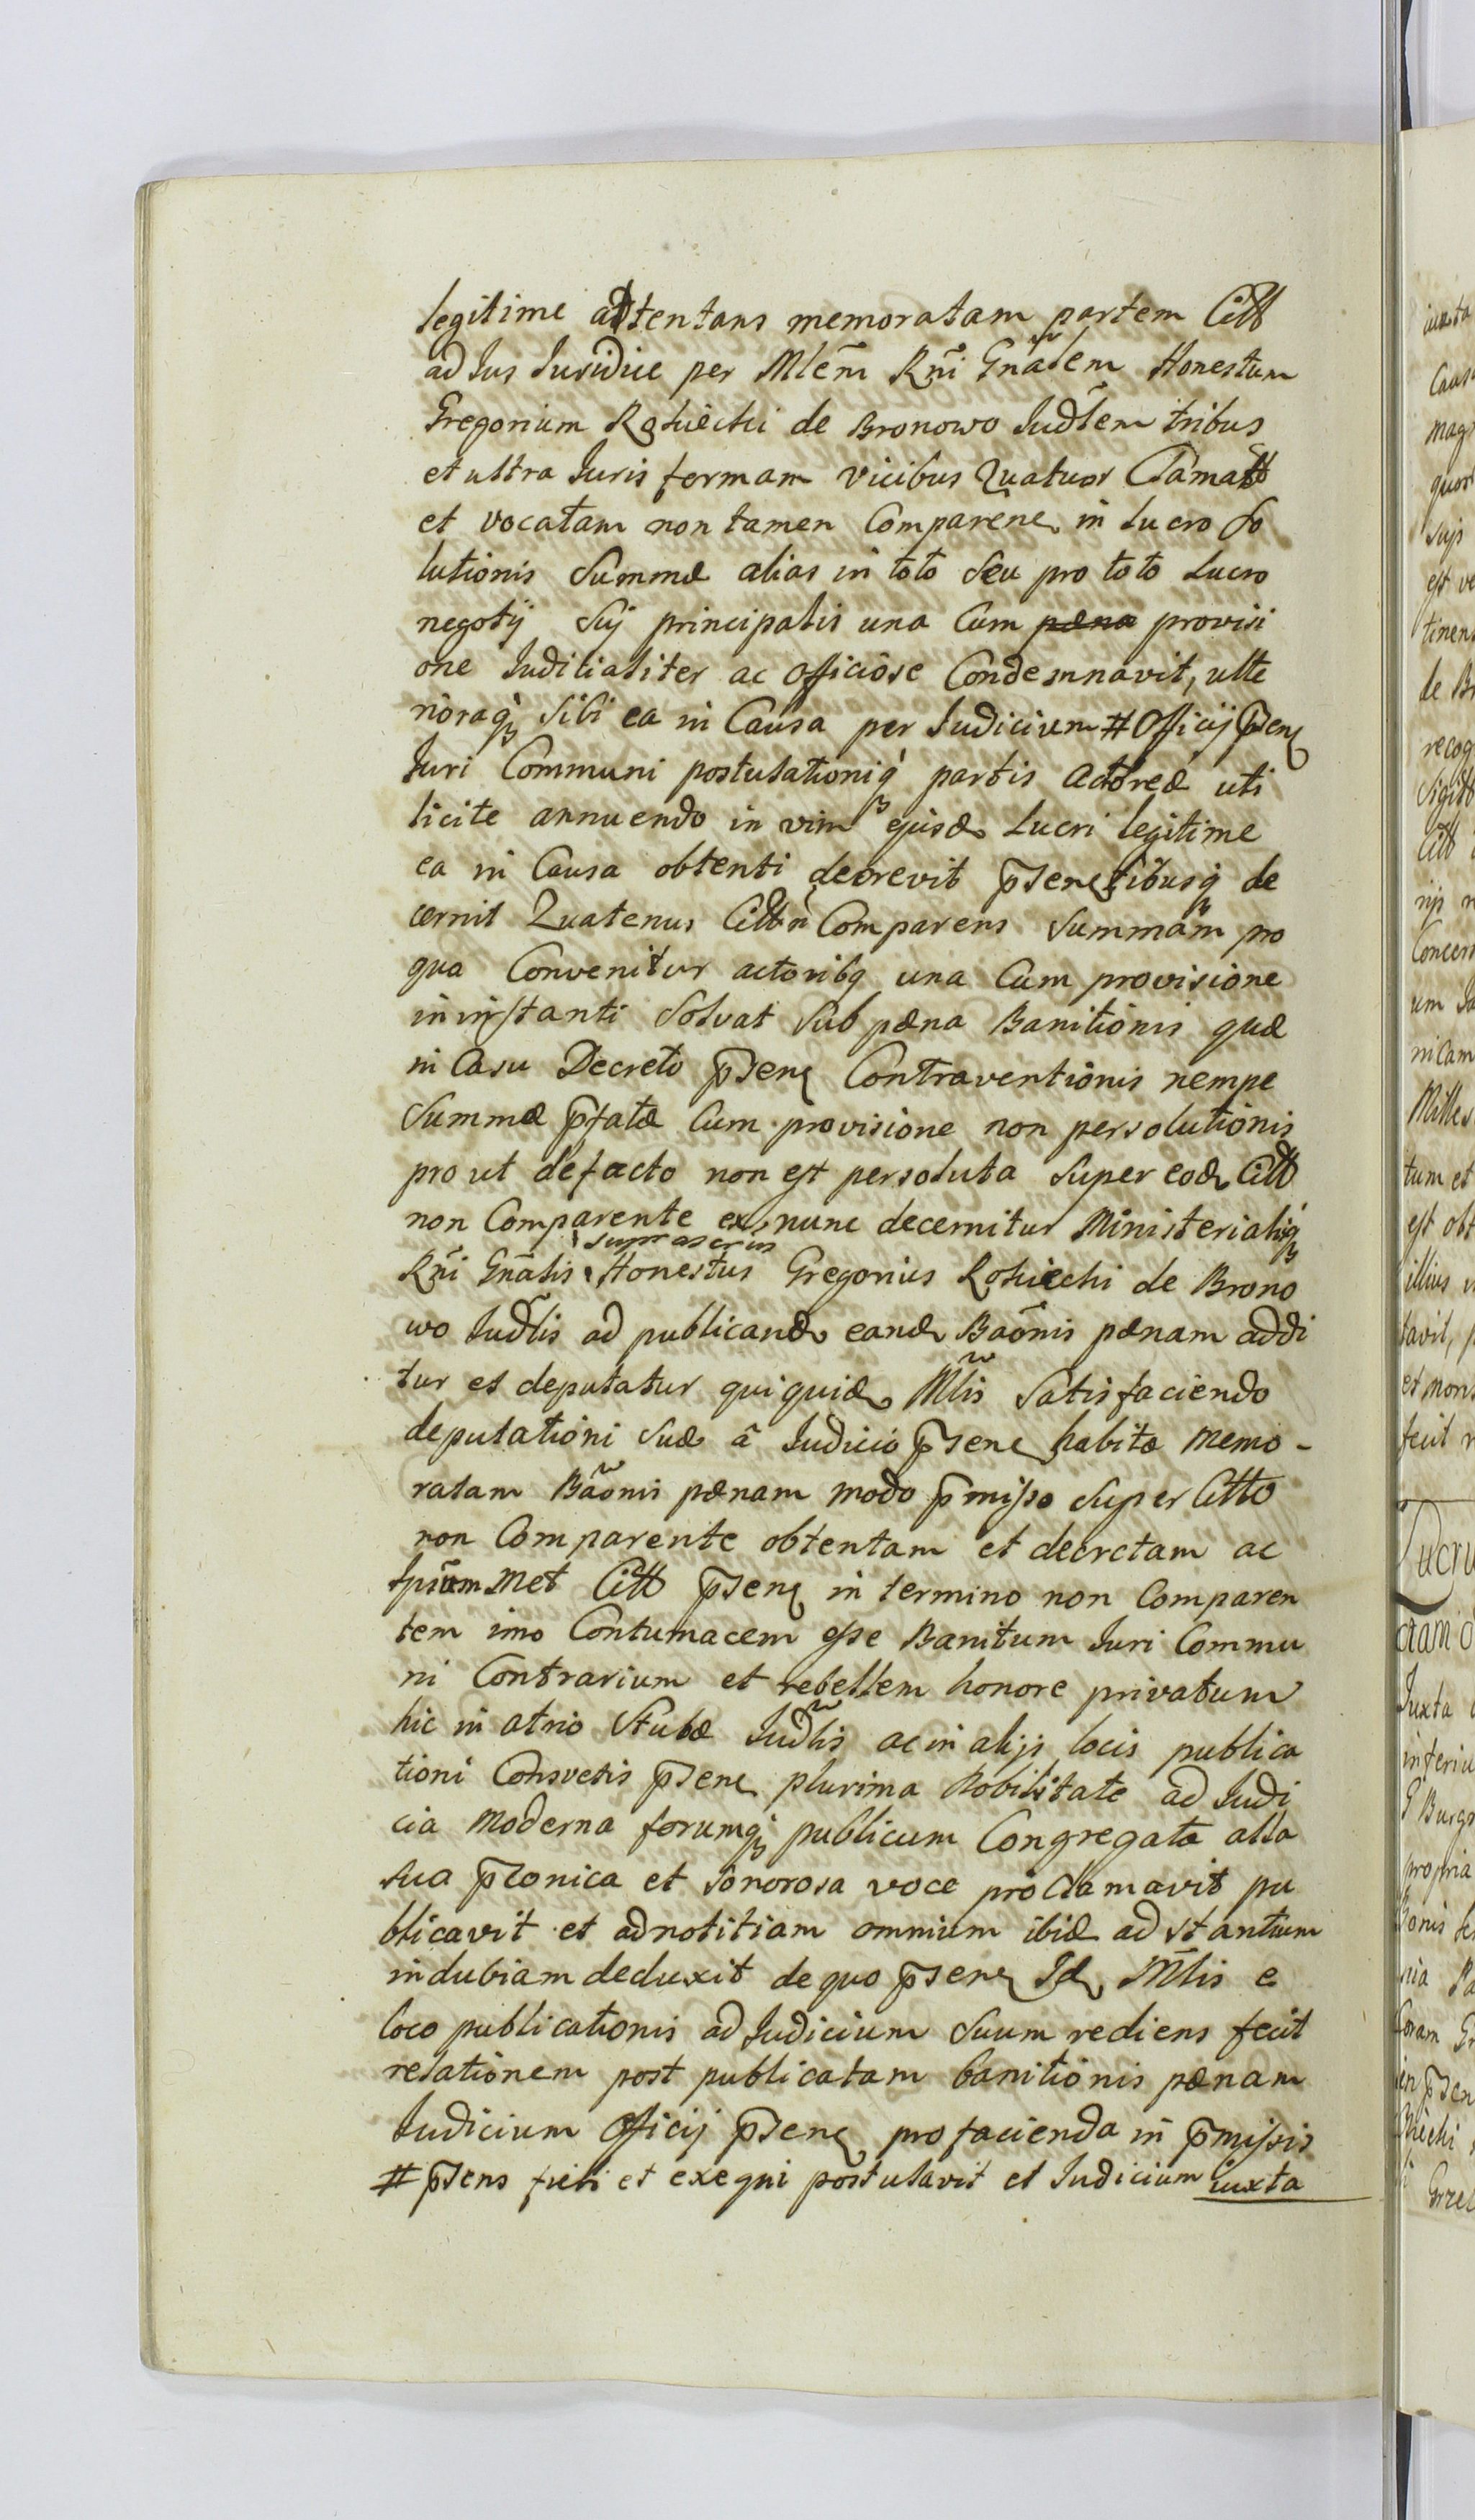 legitime attentans memoratam partem Citt
ad Jus Juridice per Mlem̃ Rñi Gnãlem Honestum
Gregorium Rohiechi de Bronowo Judl̃em tribus
et ultra Juris formam vicibus Quatuor Clamatt
et vocatam non tamen Comparẽne in Lucro So
lutionis Summæ alias in toto Seu pro toto Lucro
negotij Sui principalis una Cum pæna provisi
one Judicialiter ac Officiose Condemnavit, ulte
rioraq́ Sibi ea in Causa per Judicium # Officij p̃sen
Juri Communi postulationiq́ partis actoreæ uti
licite annuendo in vim ejusd Lucri legitime
ea in Causa obtenti decrevit p̃sentibusq́ de
cernit Quatenus Cittũ Comparens Summam pro
qua Convenitur actoribq una Cum provisione
in instanti Solvat Sub pæna Banitionis quæ
in Casu Decreto p̃sen Contraventionis nempe
Summæ p̃fatæ Cum provisione non persolutionis
pro ut de facto non est persoluta Super eod Citt
non Comparente ex nunc decernitur Ministerialiq́
suprascrius
Rñi Gnãlis Honestus Gregorius Rohiechi de Brono
wo Judl̃is ad publicand eand Baõnis pænam addi
tur et deputatur qui quid Ml̃is Satisfaciendo
deputationi Suæ â Judicio p̃sene habitæ memo-
ratam Baõnis pænam modo p̃misso Super Citto
non Comparente obtentam et decretam ac
Ipsũm met Citt p̃sen in termino non Comparen
tem imo Contumacem esse Banitum Juri Commu
ni Contrarium et rebellem honore privatum
hic in atrio Stubæ Judl̃is ac in alijs locis publica
tioni Consvetis p̃sene plurima Nobilitate ad Judi
cia moderna forumq́ publicum Congregata alta
sua p̃conica et Sonorosa voce proclamavit pu
blicavit et ad notitiam omnium ibid ad stantium
indubiam deduxit de quo p̃sen Id Ml̃is e
loco publicationis ad Judicium Suum rediens fecit
relationem post publicatam banitionis pænam
Judicium Officij p̃sen pro facienda in p̃missis
# p̃sens fieri et exequi postulavit et Judicium iuxta